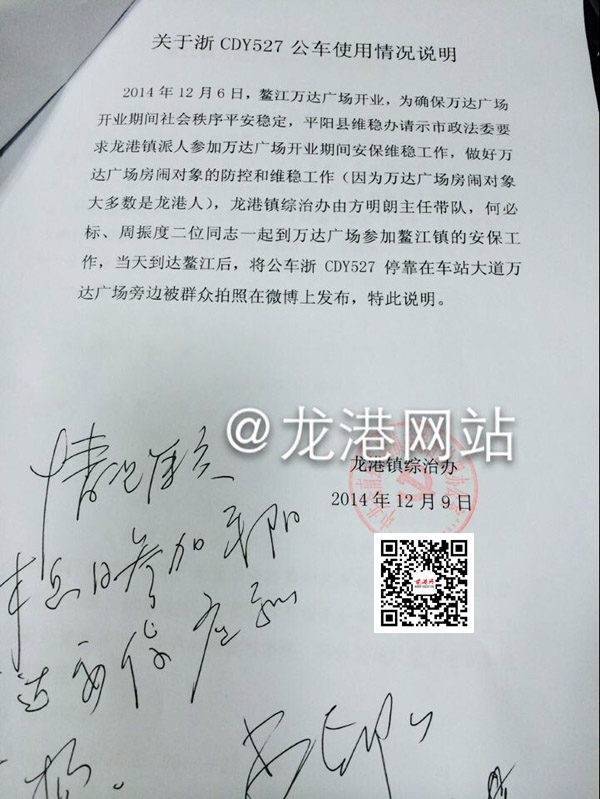 关于浙 CDY527 公车使用情况说明
2014 年 12 月 6 日，鳌江万达广场开业，为确保万达广场
开业期间社会秩序平安稳定，平阳县维稳办请示市政法委要
求龙港镇派人参加万达广场开业期间安保维稳工作，做好万
达广场房闹对象的防控和维稳工作（因为万达广场房闹对象
大多数是龙港人），龙港镇综治办由方明朗主任带队，何必
标、周振度二位同志一起到万达广场参加鳌江镇的安保工
作，当天到达鳌江后，将公车浙 CDY527 停靠在车站大道万
达广场旁边被群众拍照在微博上发布，特此说明。
@龙港网站
龙港镇综治办
2014 年 12 月 9 日
情况属实
日参加平阳
安保